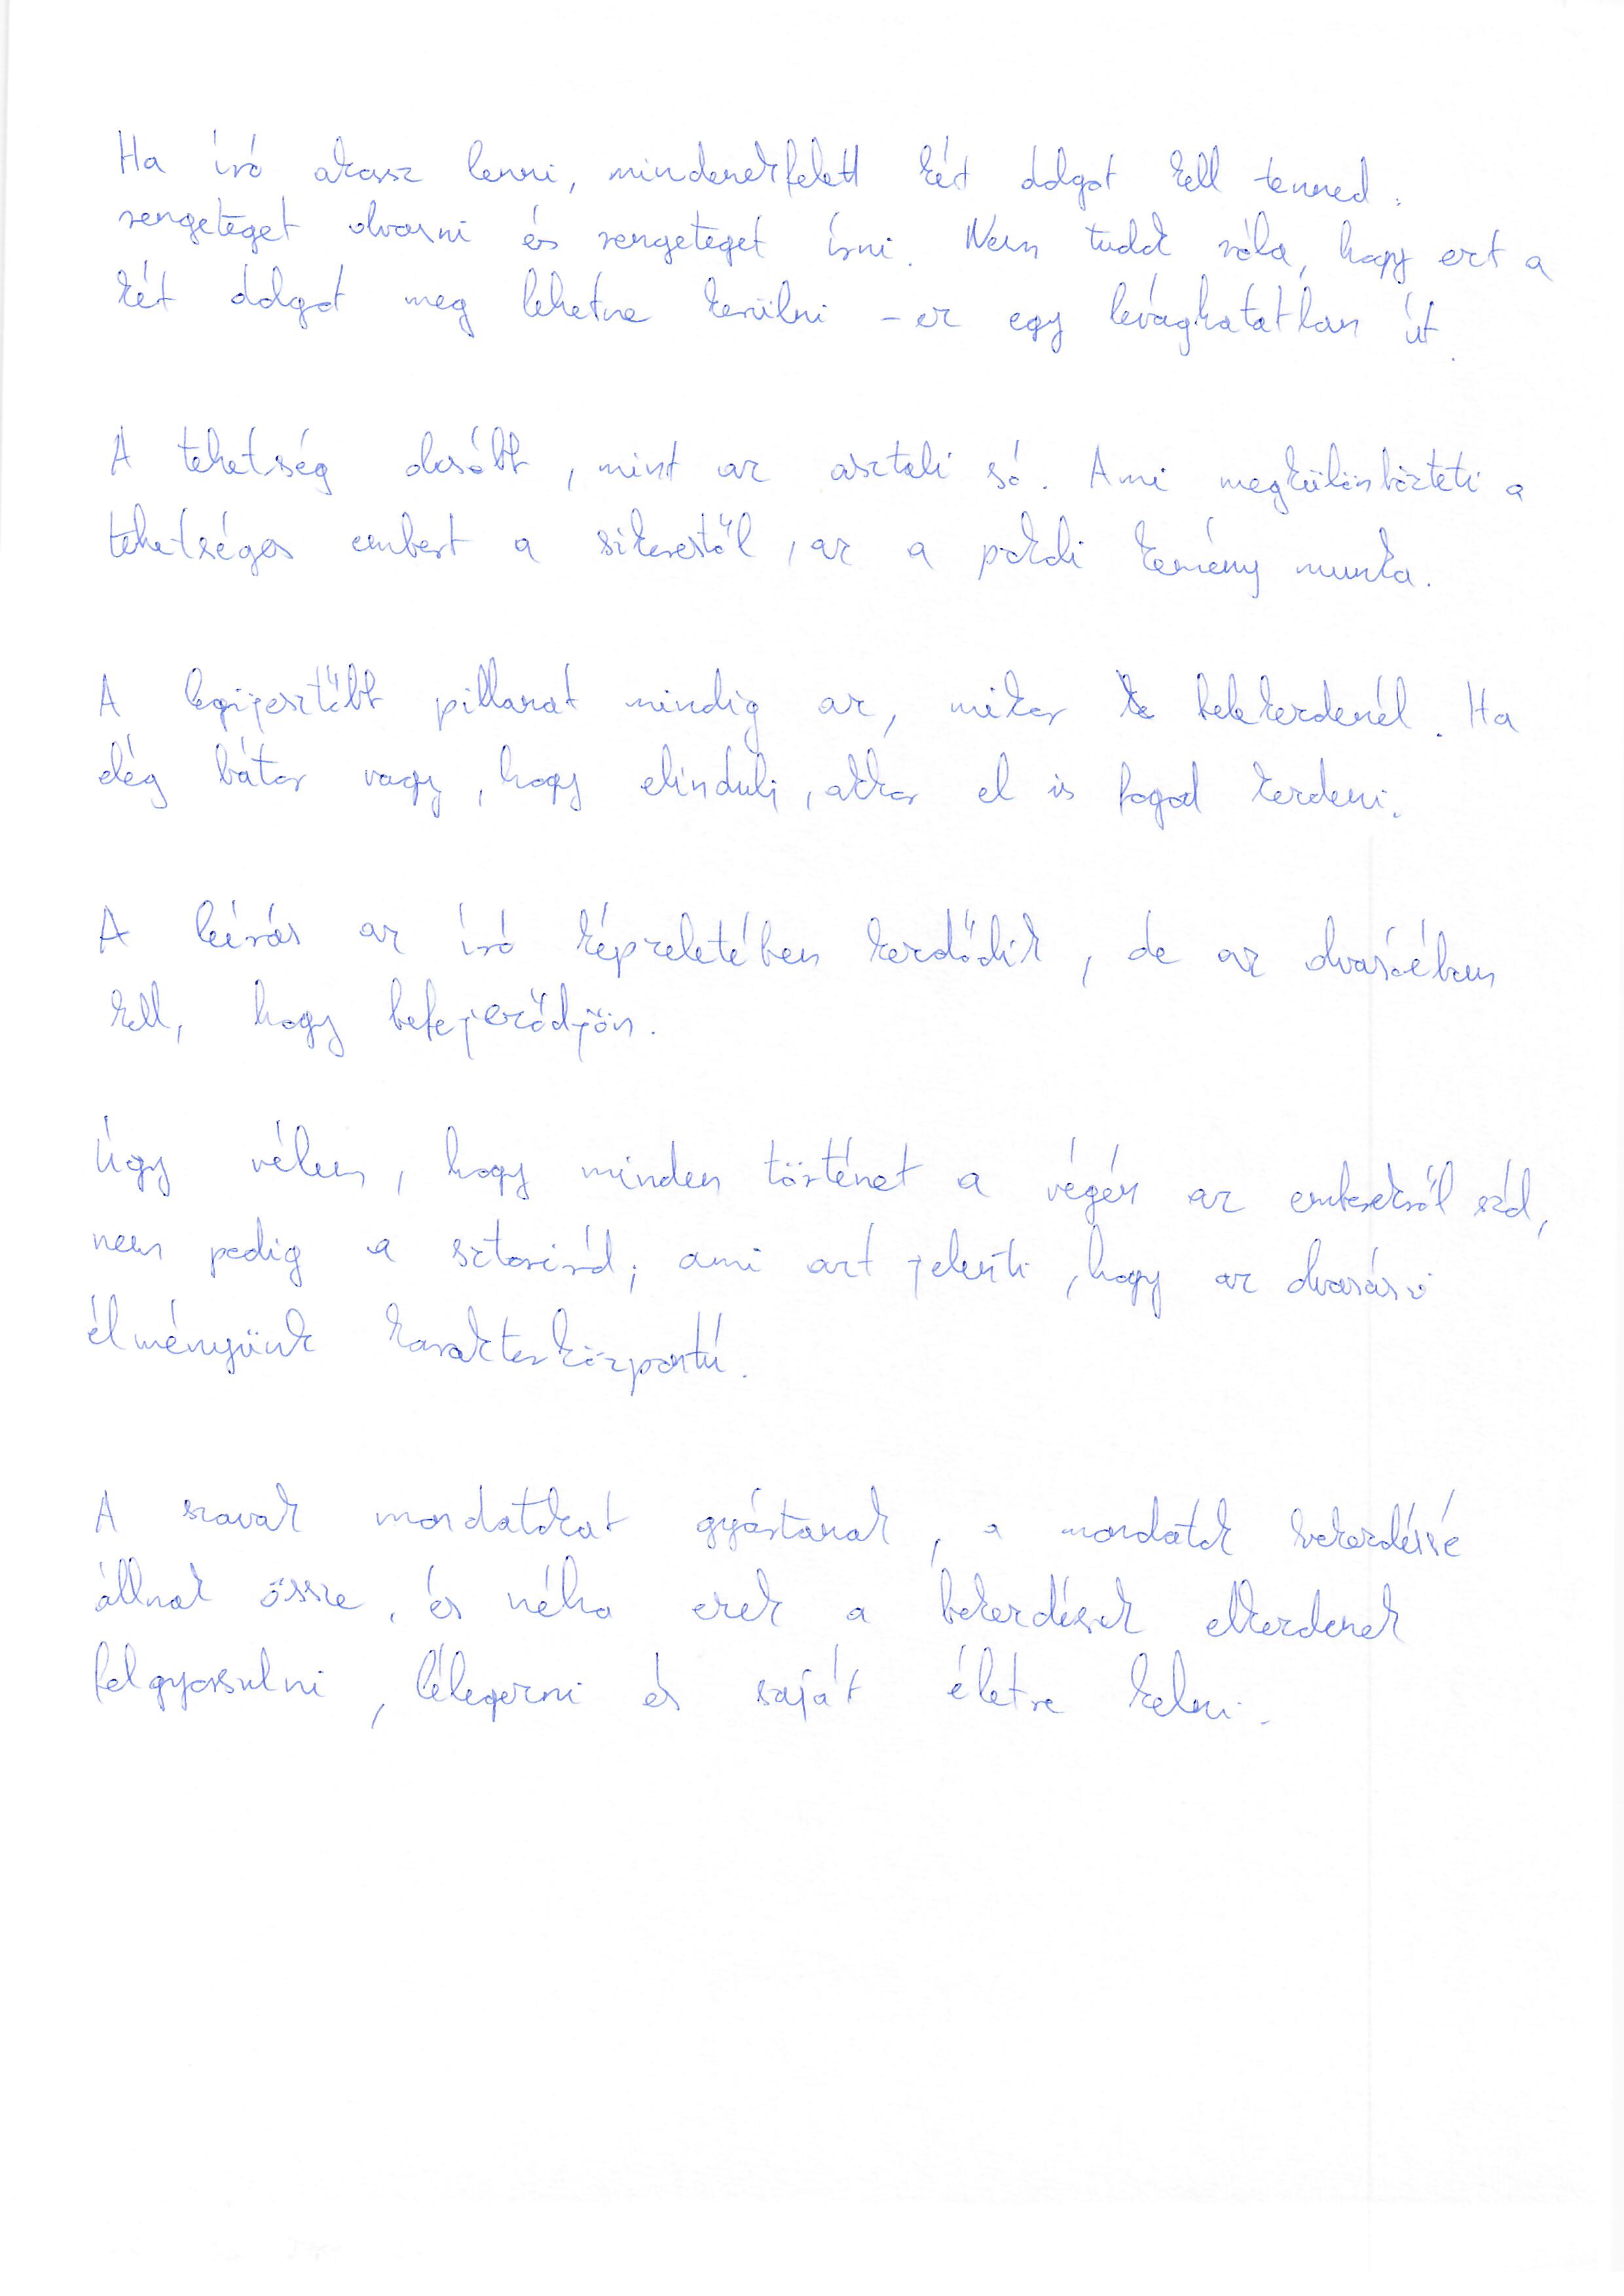 Ha író akarsz lenni, mindenekfelett két dolgot kell tenned:
rengeteget olvasni és rengeteget írni. Nem tudok róla, hogy ezt a
két dolgot meg lehetne kerülni – ez egy levághatatlan út.
A tehetség olcsóbb, mint az asztali só. Ami megkülönbözteti a
tehetséges embert a sikerestől, az a pokoli kemény munka.
A legijesztőbb pillanat mindig az, mikor belekezdenél. Ha
elég bátor vagy, hogy elindulj, akkor el is fogod kezdeni.
A leírás az író képzeletében kezdődik, de az olvasóéban
kell, hogy befejeződjön.
Úgy vélem, hogy minden történet a végén az emberekről szól,
nem pedig a sztoriról; ami azt jelenti, hogy az olvasási
élményünk karakterközpontú.
A szavak mondatokat gyártanak, a mondatok bekezdéssé
állnak össze, és néha ezek a bekezdések elkezdenek
felgyorsulni, lélegezni és saját életre kelni.